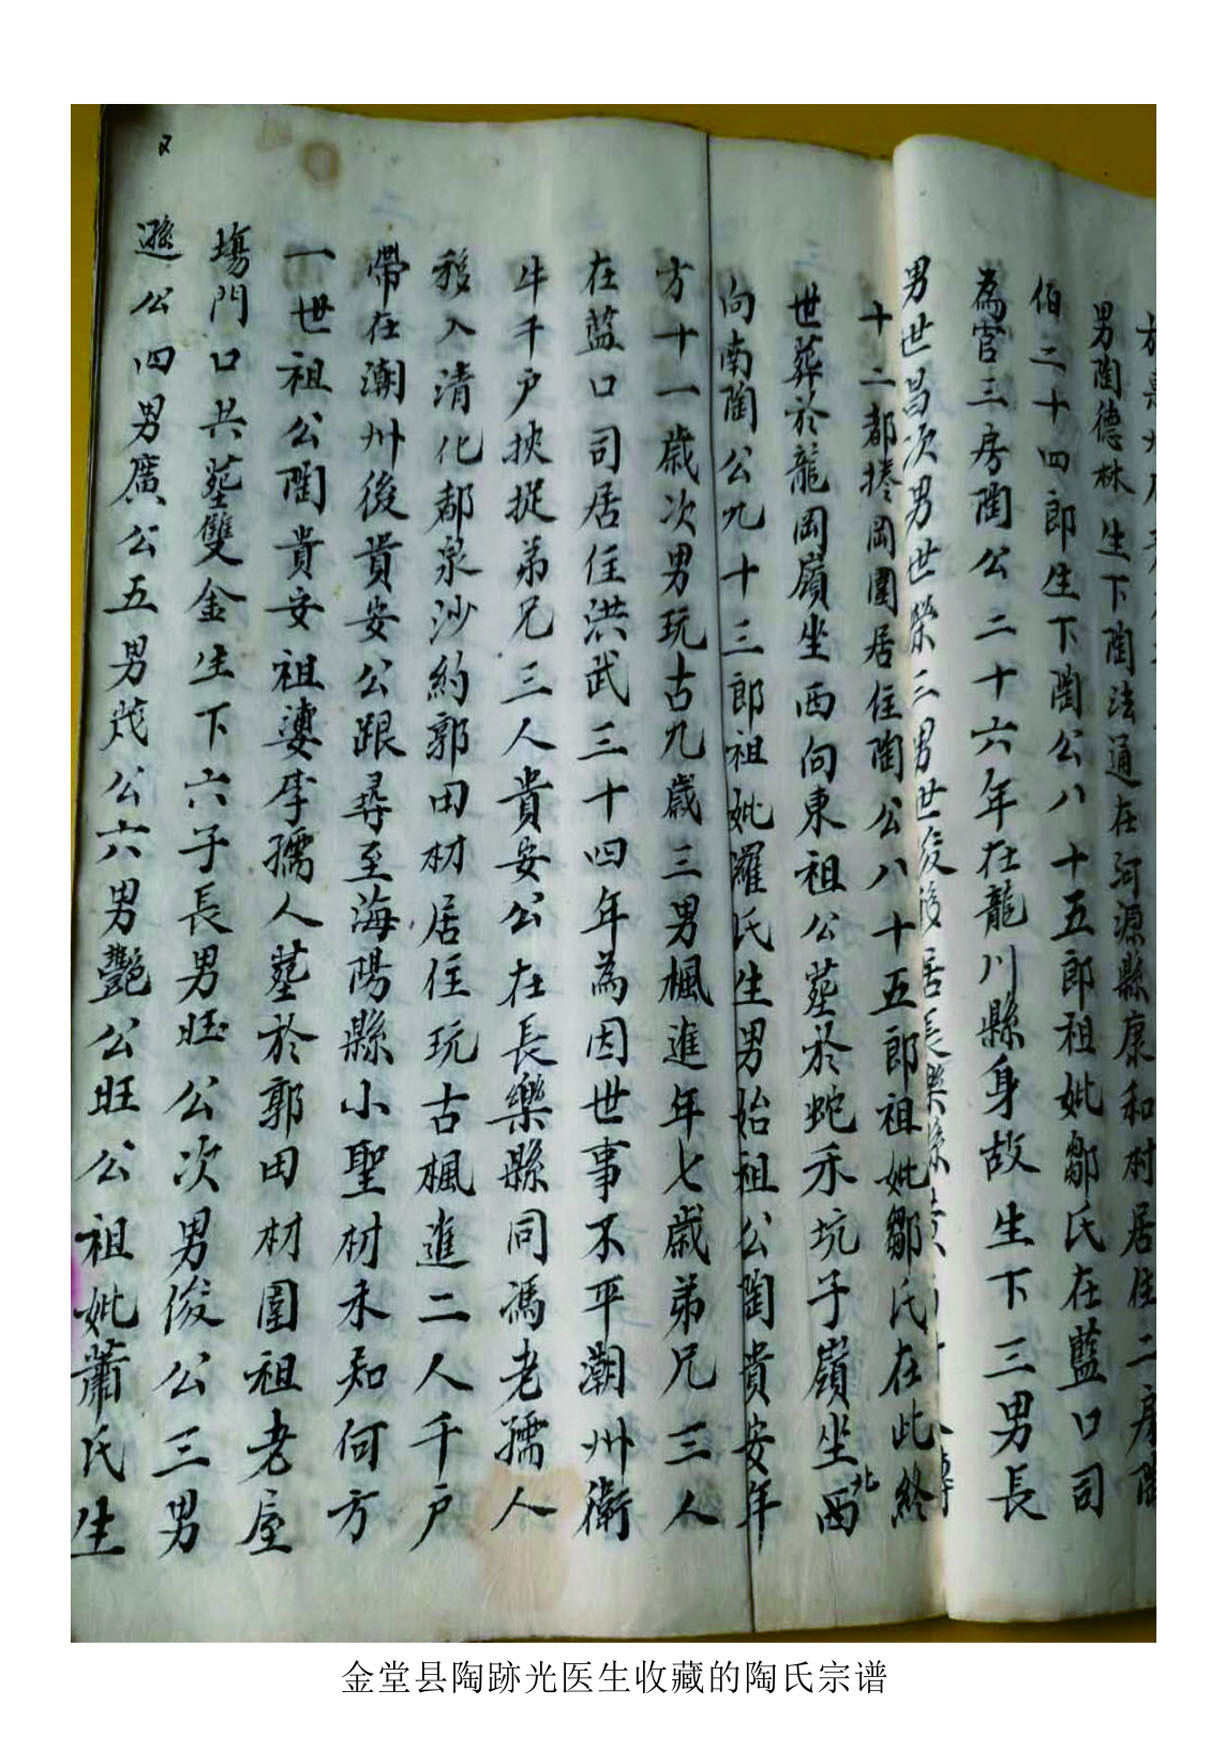 男陶德林生下陶法通在河源縣康和村居住二房陶
伯二十四郎生下陶公八十五郎祖妣鄒氏在藍口司
為官三房陶公二十六年在龍川縣身故生下三男長
男世昌次男世榮三男世俊後居長樂縣
十二都 岡圍居住陶公八十五郎祖妣鄒氏在此終
世葬於龍岡嶺坐西向東祖公塟於蛇禾坑子嶺坐西北
向南陶公九十三郎祖妣羅氏生男始祖公陶貴安年
方十一歲次男玩古九歲三男楓進年七歲弟兄三人
在藍口司居住洪武三十四年為因世事不平潮州衛
牛千户挾捉弟兄三人貴安公在長樂縣同馮老孺人
移入清化都泉沙約郭田村居住玩古楓進二人千户
帶在潮州後貴安公跟尋至海陽縣小聖村未知何方
一世祖公陶貴安祖婆李孺人塟於郭田村圍祖老屋
塲門口共塟雙金生下六子長男旺公次男俊公三男
遜公四男廣公五男茂公六男艷公旺公祖妣蕭氏生
金堂县陶跡光医生收藏的陶氏宗谱